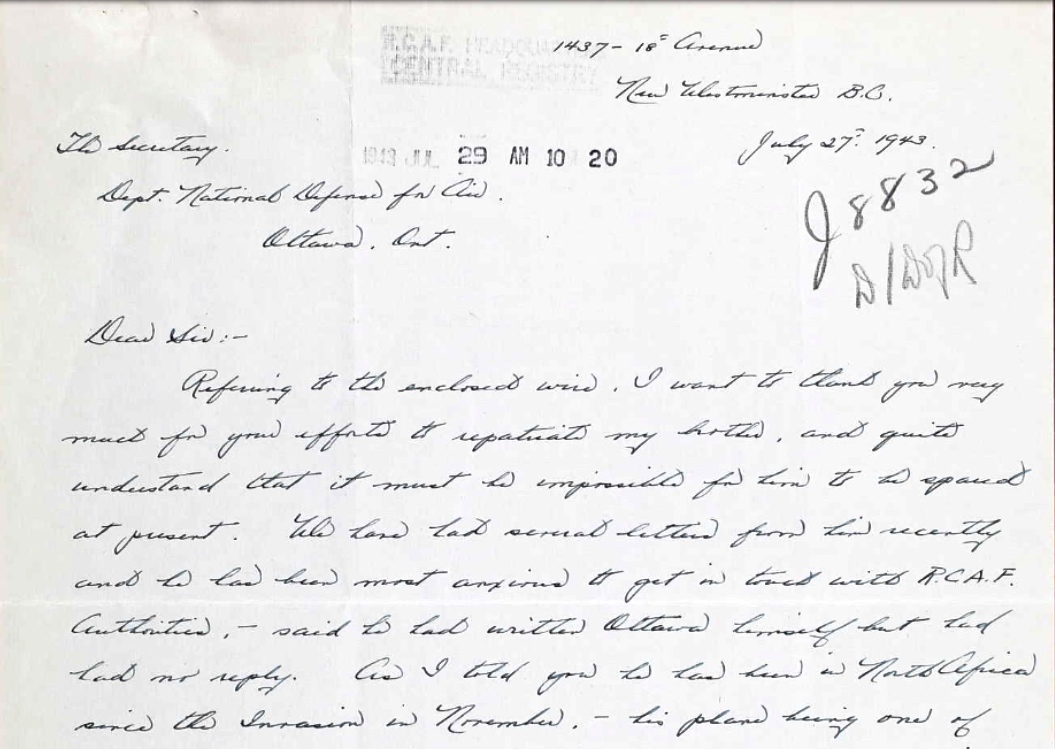 R.C.A.F. HEADQUARTERS
CENTRAL REGISTRY
1437 - 18th Avenue
New Westminster B.C.
July 27th 1943.
The Secretary.
1943 JUL 29 AM 10 20
Dept. National Defense for Air.
Ottawa. Ont.
J 8832
Dear Sir:-
Referring to the enclosed wire, I want to thank you very
much for your efforts to repatriate my brother, and quite
understand that it must be impossible for him to be spared
at present. We have had several letters from him recently
and he has been most anxious to get in touch with R.C.A.F.
Authorities, - said he had written Ottawa himself but had
had no reply. As I told you he has been in North Africa
since the Invasion in November, - his plane being one of